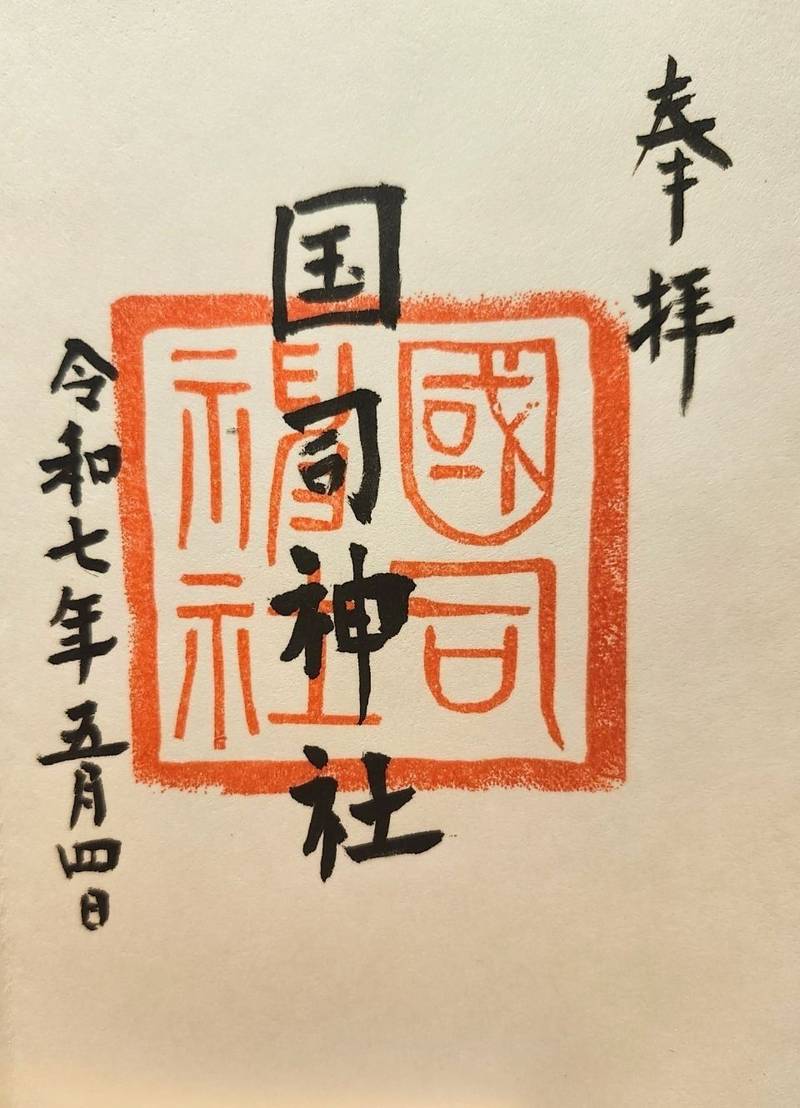 奉拝
国司神社
國司
神社
令和七年五月四日